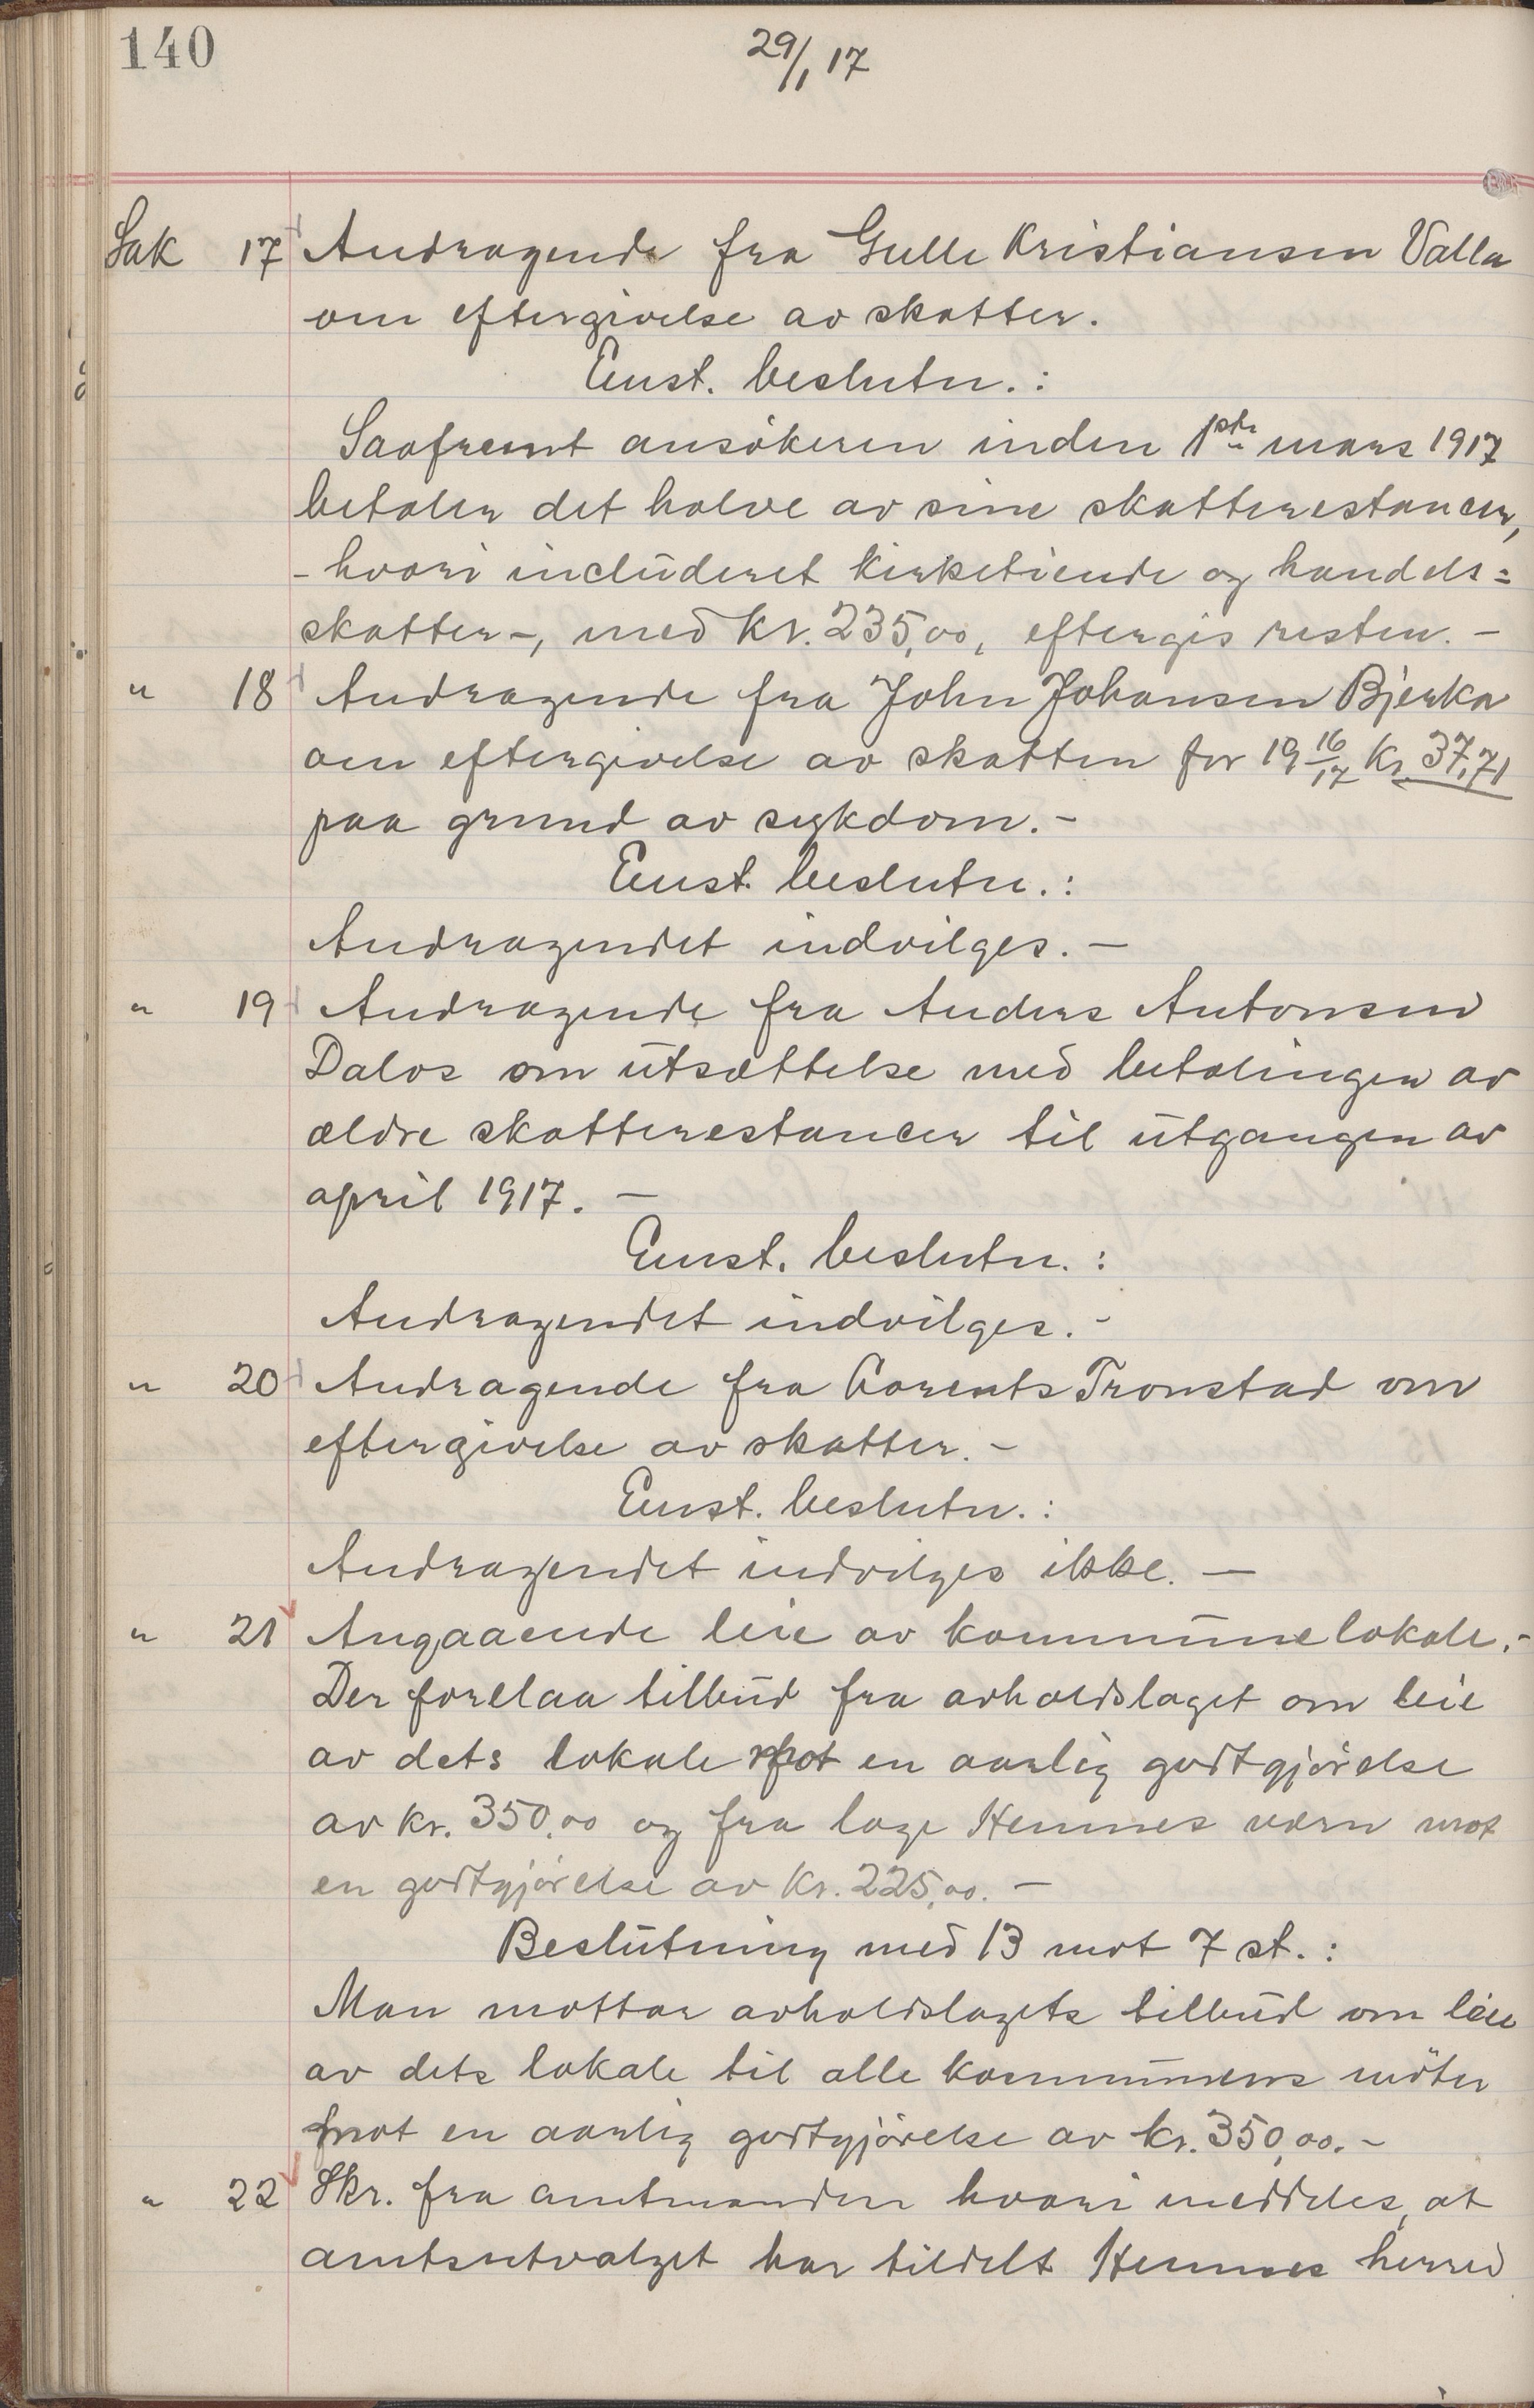 140
29/1 17
Sak 17 Andragende fra Gulle Kristiansen Valla
om eftergivelse av skatter.
Enst. beslutn.:
Saafremt ansökeren inden 1ste mars 1917
betaler det halve av sine skatterestancer,
- hvori includeret kirketiende og handels=
skatter -, med kr. 235,00, eftergis resten. -
" 18 Andragende fra John Johansen Bjerka
om eftergivelse av skatten for 19 16/17 kr. 37,71
paa grund av sykdom. -
Enst. beslutn.:
Andragendet indvilges. -
" 19 Andragende fra Anders Antonsen
Dalos om utsættelse med betalingen av
ældre skatterestancer til utgangen av
april 1917. -
Enst. beslutn.:
Andragendet indvilges. -
" 20 Andragende fra Lorents Tronstad om
eftergivelse av skatter. -
Enst. beslutn.:
Andragendet indvilges ikke. -
" 21 Angaaende leie av kommunelokale. -
Der forelaa tilbud fra avholdslaget om leie
av dets lokale mot en aarlig godtgjörelse
av kr. 350,00 og fra loge Hemnes værn mot
en godtgjörelse av kr. 225,00. -
Beslutning med 13 mot 7 st.:
Man mottar avholdslagets tilbud om leie
av dets lokale til alle kommunens möter
mot en aarlig godtgjörelse av kr. 350,00. -
" 22 Skr. fra amtmanden hvori meddeles, at
amtsutvalget har tildelt Hemnes herred